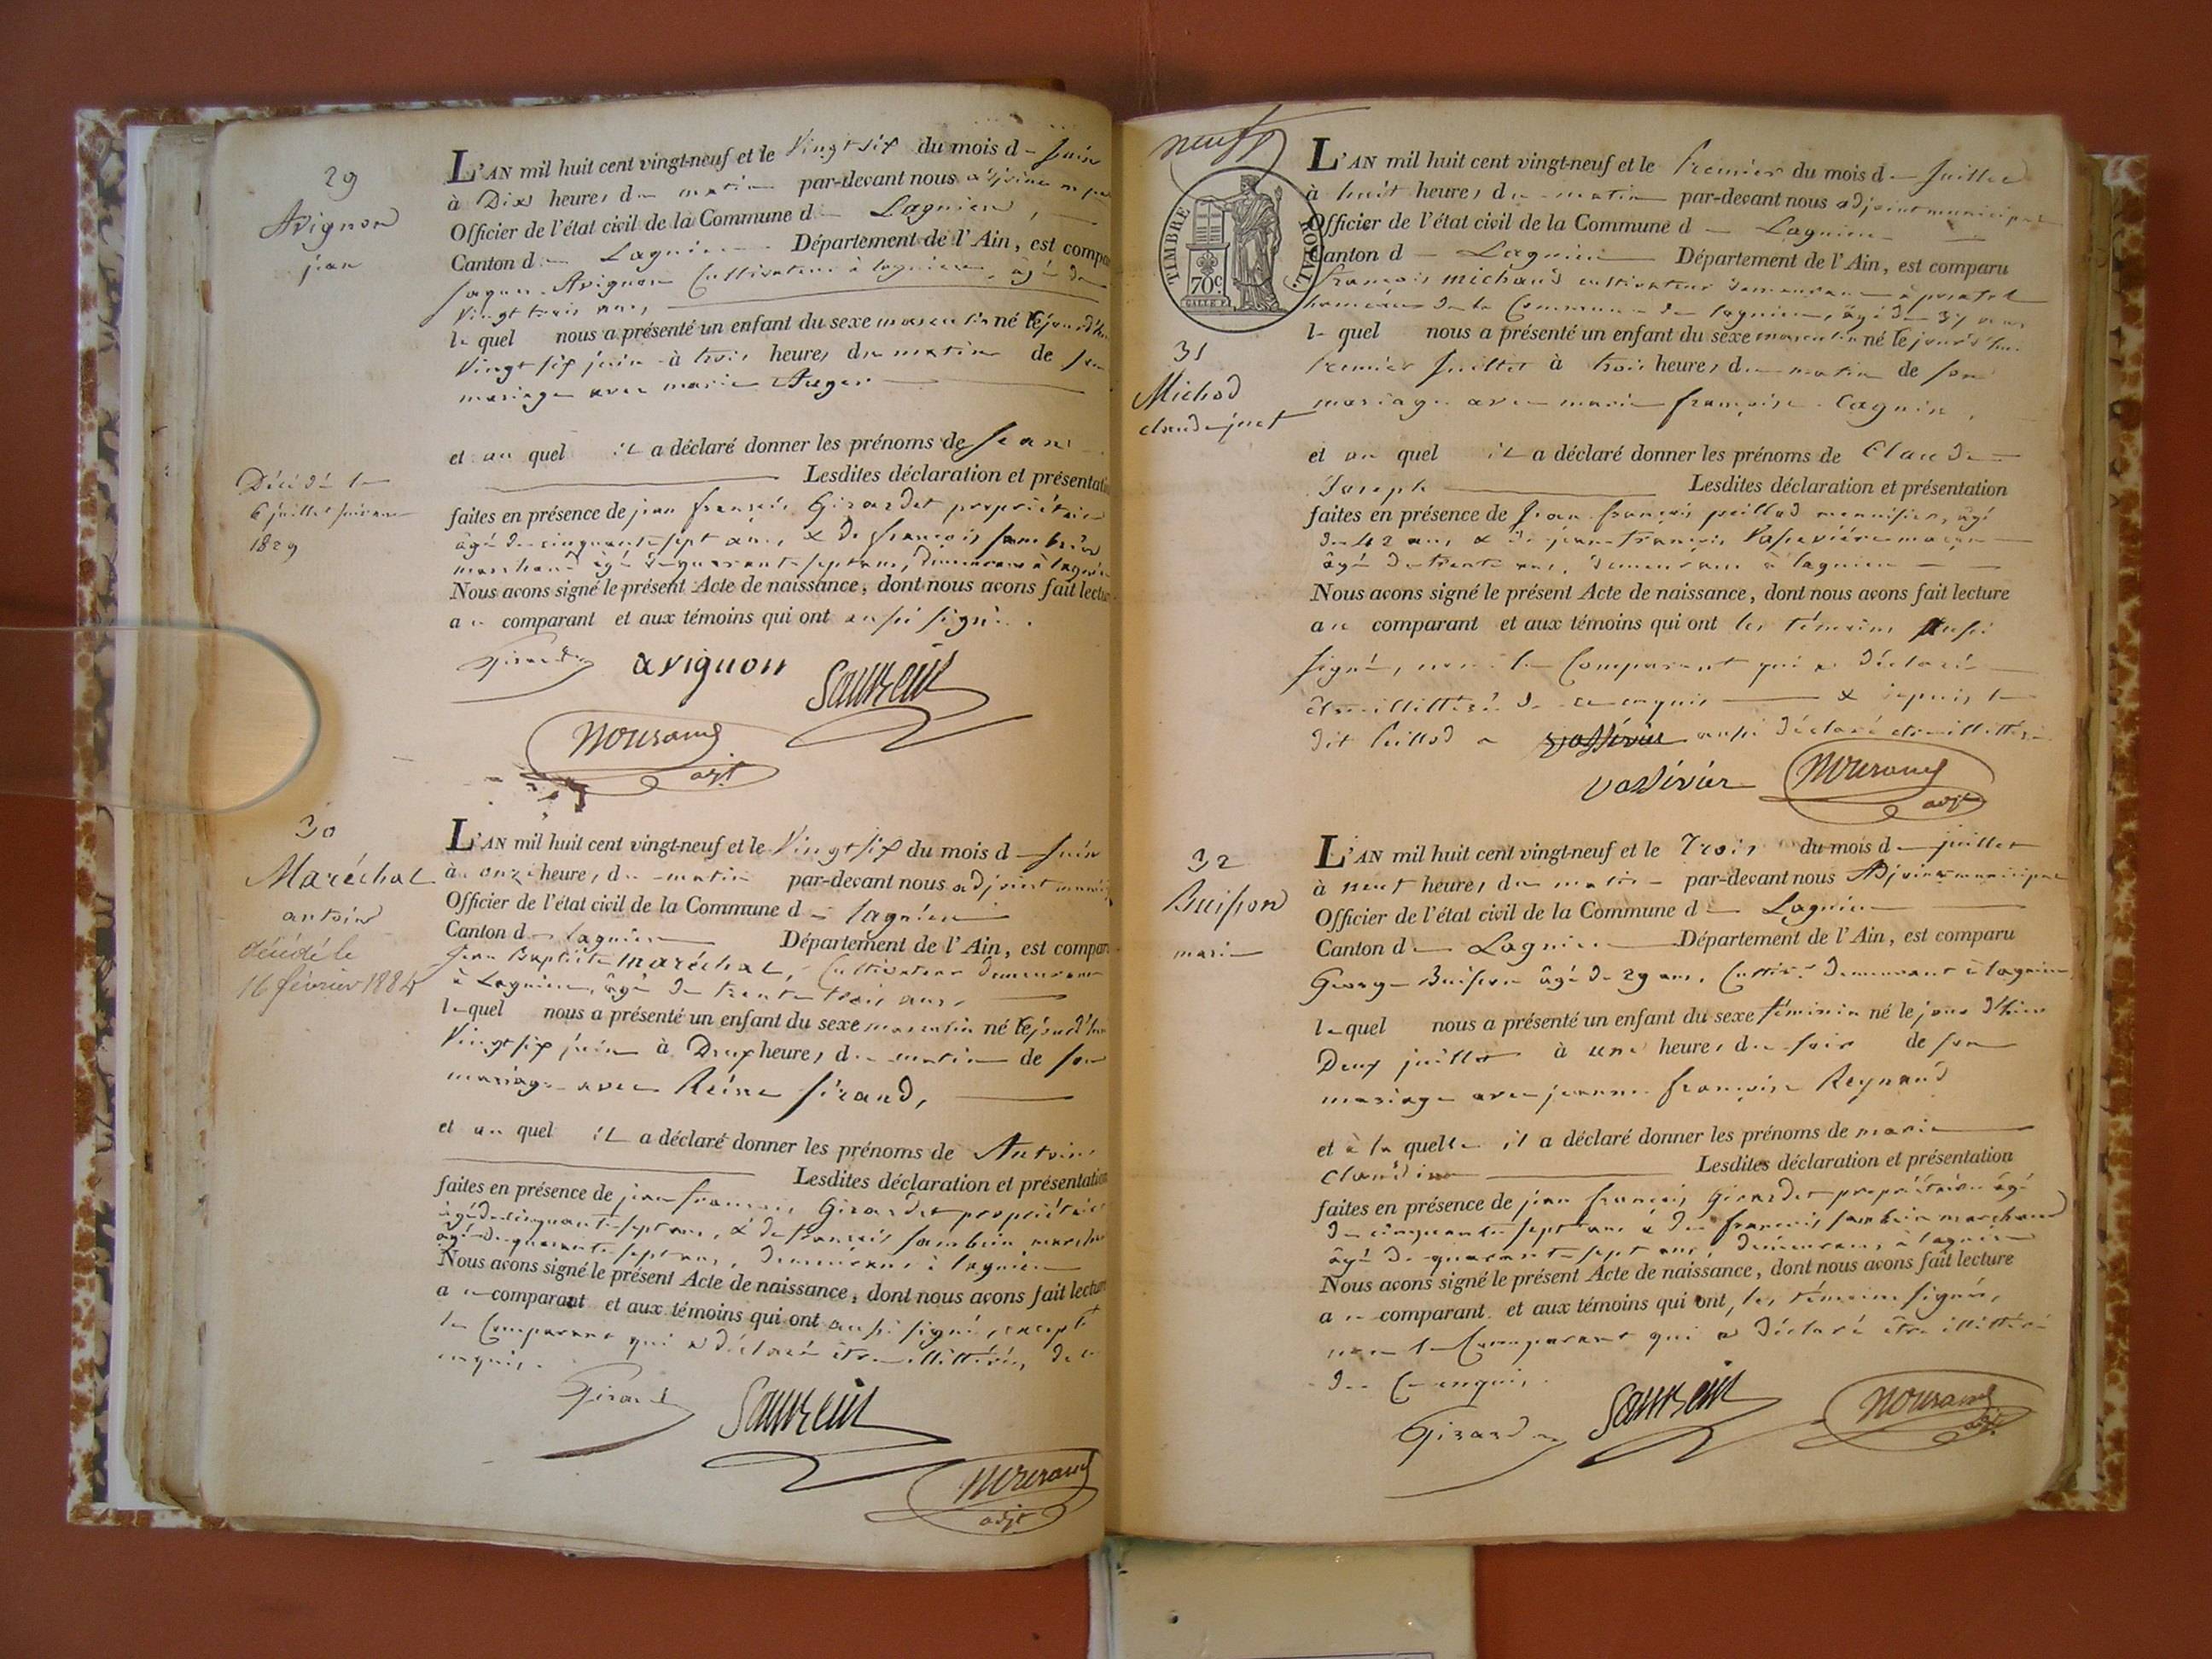 29
Avignon
jean
L'AN mil huit cent vingt-neuf et le Vingt six du mois d juin
à Dix heures du matin par-devant nous adjoint
Officier de l'état civil de la Commune d Lagnieu,
Canton d Lagnieu Département de l'Ain, est compa
jaques Avignon Cultivateur à lagnieu, âgé de
Vingt trois ans,
le quel nous a présenté un enfant du sexe masculin né le jourd'hui
Vingt six juin à trois heures du matin de son
mariage avec marie Auger
et au quel il a déclaré donner les prénoms de Jean
Lesdites déclaration et présentatio
Décédé le
6 juillet suivant
1829
faites en présence de jean françois Girardet propriétaire
âgé de cinquante sept ans, & de françois
marchand âgé de quarante sept ans, demeurans à lagnieu
Nous avons signé le présent Acte de naissance, dont nous avons fait lectur
au comparant et aux témoins qui ont aussi signé.
Girardet avignon
adjt
30
Maréchal
antoine
décédé le
16 février 1884
L'AN mil huit cent vingt-neuf et le Vingt six du mois d juin
à onze heures du matin par-devant nous adjoint
Officier de l'état civil de la Commune d lagnieu
Canton d lagnieu Département de l'Ain, est compar
Jean Baptiste Maréchal, Cultivateur demeurant
à Lagnieu, âgé de trente trois ans,
le quel nous a présenté un enfant du sexe masculin né le jourd'hui
Vingt six juin à Deux heures du matin de son
mariage avec Reine Sirand,
et au quel il a déclaré donner les prénoms de Antoine
Lesdites déclaration et présentation
faites en présence de jean françois Girardet propriétaire
âgé de cinquante sept ans, & de françois marchand
âgé de quarante sept ans, demeurans à lagnieu
Nous avons signé le présent Acte de naissance, dont nous avons fait lecture
au comparant et aux témoins qui ont aussi signé, excepté
le Comparant qui a déclaré être illittéré, de ce
enquis.
adjt
neuf
TIMBRE ROYAL.
70 c.
31
Michod
claude jph
L'AN mil huit cent vingt-neuf et le Premier du mois d juillet
à huit heures du matin par-devant nous adjoint municipal
Officier de l'état civil de la Commune d Lagnieu
Canton d Lagnieu Département de l'Ain, est comparu
françois michaud cultivateur demeurant à
hameau de la Commune de lagnieu, âgé de 37 ans
le quel nous a présenté un enfant du sexe masculin né le jourd'hui
Premier Juillet à trois heures du matin de son
mariage avec marie françoise Cagnin,
et au quel il a déclaré donner les prénoms de Claude
Joseph Lesdites déclaration et présentation
faites en présence de jean françois peillod menuisier, âgé
de 42 ans & de jean françois maçon
âgé de trente ans, demeurans à lagnieu
Nous avons signé le présent Acte de naissance, dont nous avons fait lecture
au comparant et aux témoins qui ont les témoins aussi
signé, non le Comparant qui a déclaré
être illittéré de ce enquis & depuis le
dit Peillod a aussi déclaré être illittéré
vassivier
adjt
32
Buisson
marie
L'AN mil huit cent vingt-neuf et le Trois du mois d juillet
à neuf heures du matin par-devant nous Adjoint municipal
Officier de l'état civil de la Commune d Lagnieu
Canton d Lagnieu Département de l'Ain, est comparu
George Buisson âgé de 29 ans, Cultivr demeurant à lagnieu
le quel nous a présenté un enfant du sexe féminin né le jour d'hier
Deux juillet à une heures du soir de son
mariage avec jeanne françoise Reynaud
et à la quelle il a déclaré donner les prénoms de marie
Claudine Lesdites déclaration et présentation
faites en présence de jean françois Girardet propriétaire âgé
de cinquante sept ans & de françois marchand
âgé de quarante sept ans, demeurans à lagnieu
Nous avons signé le présent Acte de naissance, dont nous avons fait lecture
au comparant et aux témoins qui ont, les témoins signés,
non le Comparant qui a déclaré être illittéré
de ce enquis.
Girardet
adjt